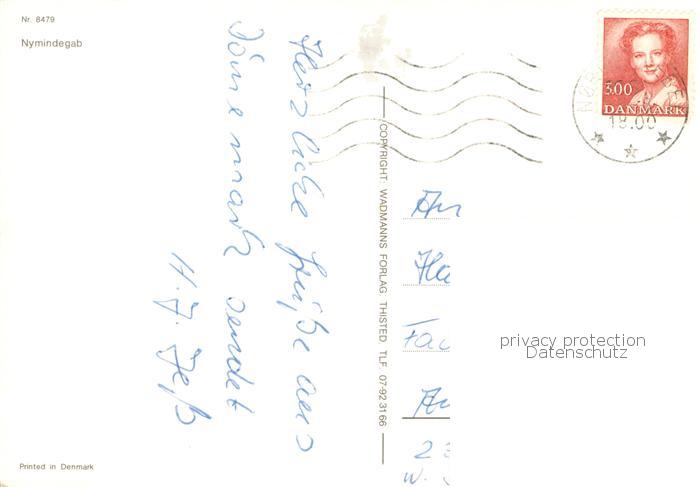 Nr. 8479
Nymindegab
Herzliche Grüße aus
Dänemark sendet
H. J. Jeß
COPYRIGHT: WADMANNS FORLAG THISTED TLF. 07-92 31 66
3.00
DANMARK
18.00
An
privacy protection
Datenschutz
Printed in Denmark